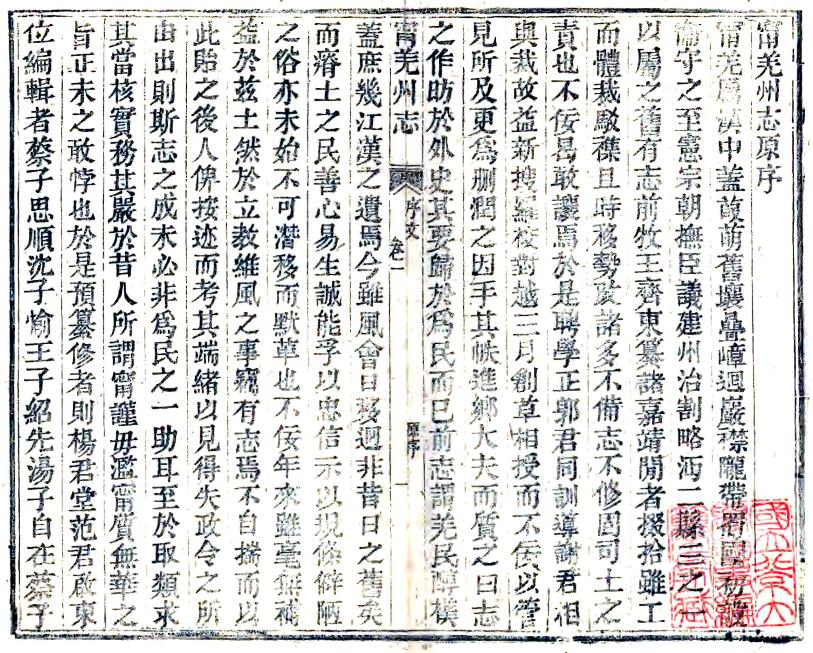 甯羌州志原序
甯羌屬漢中蓋葭萌舊壤疊嶂迴巖襟隴帶蜀國初設
衞守之至憲宗朝撫臣議建州治割略沔二縣三之一
以屬之舊有志前牧王齊東纂諸嘉靖閒者掇拾雖工
而體裁駁襍且時移勢改諸多不備志不修固司土之
責也不佞曷敢讓焉於是聘學正郭君同訓導謝君相
與裁故益新搜羅校對越三月創草相授而不佞以管
見所及更為刪潤之因手其帙進鄉大夫而質之曰志
之作昉於外史其要歸於為民而已前志謂羌民醇樸
甯羌州志
序文
卷一
原序
一
蓋庶幾江漢之遺焉今雖風會日移迥非昔日之舊矣
而瘠土之民善心易生誠能孚以忠信示以規條僻陋
之俗亦未始不可潛移而默革也不佞年來雖毫無補
益於茲土然於立教維風之事竊有志焉不自揣而以
此貽之後人俾按迹而考其端緒以見得失政令之所
由出則斯志之成未必非為民之一助耳至於取類求
其當核實務其嚴於昔人所謂甯謹毋濫甯質無華之
旨正未之敢悖也於是預纂修者則楊君堂范君啟東
位編輯者蔡子思順沈子愉王子紹先湯子自在蔡子